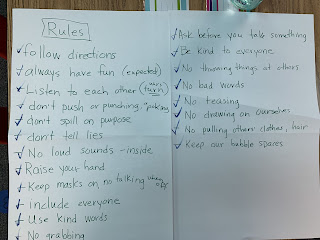 Rules
follow directions
always have fun (expected)
Listen to each other (turn
don't push or punching, "poking
don't spill on purpose
don't tell lies
No loud sounds - inside
Raise your hand
Keep masks on no talking when off
include everyone
Use kind words
No grabbing
Ask before you take something
Be kind to everyone
No throwing things at others
No bad words
No teasing
No drawing on ourselves
No pulling others' clothes, hair
Keep our bubble spares